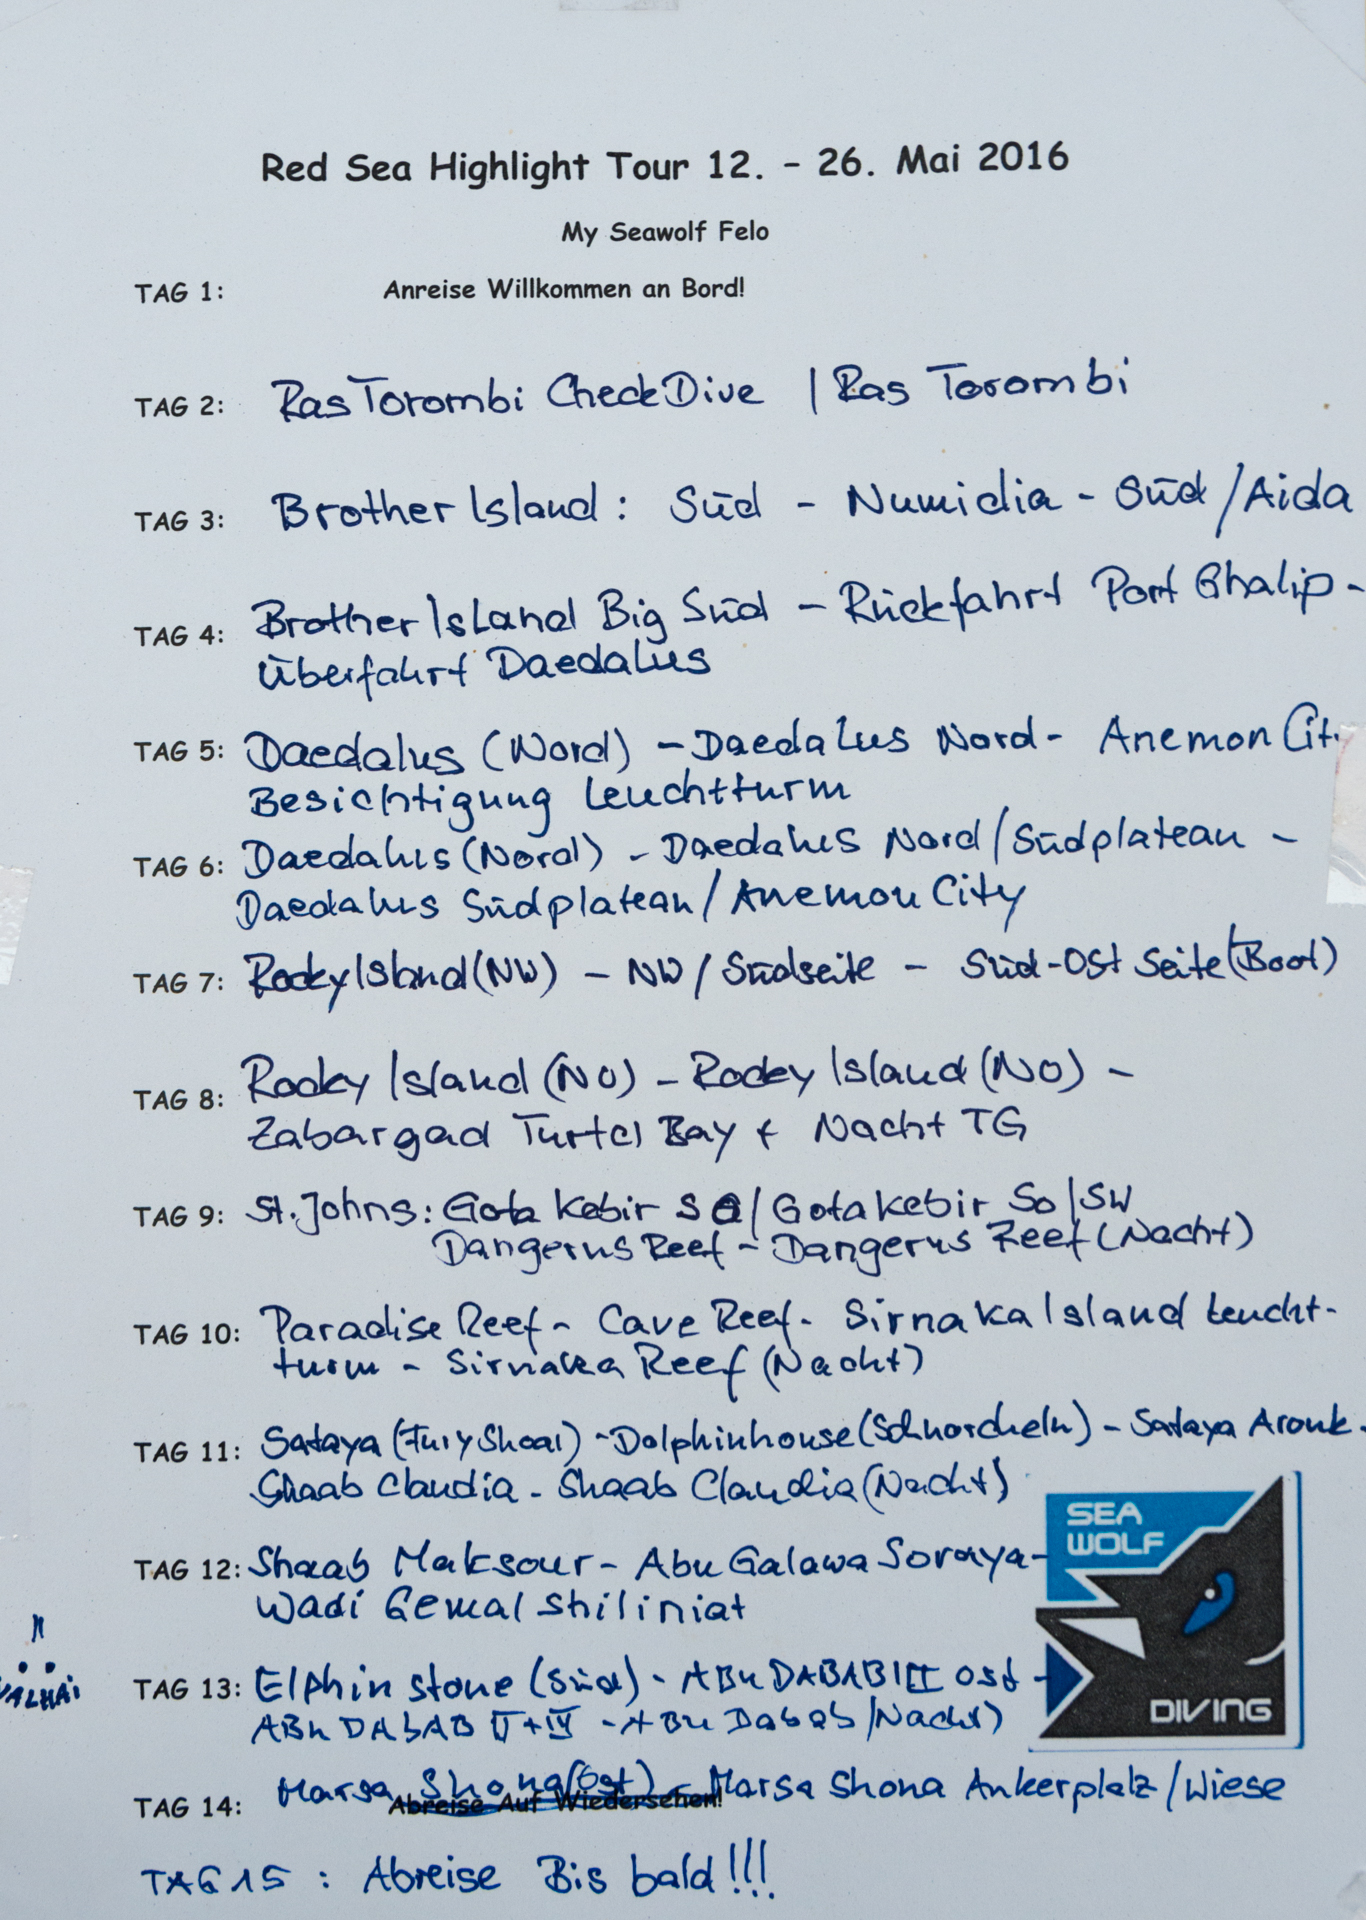 Red Sea Highlight Tour 12. - 26. Mai 2016
My Seawolf Felo
TAG 1: Anreise Willkommen an Bord!
TAG 2: Ras Torombi CheckDive | Ras Torombi
TAG 3: Brother Island: Süd - Numidia - Süd / Aida
TAG 4: Brother Island Big Süd - Rückfahrt Port Ghalip -
Überfahrt Daedalus
TAG 5: Daedalus (Nord) - Daedalus Nord - Anemon Cit
Besichtigung Leuchtturm
TAG 6: Daedalus (Nord) - Daedalus Nord / Südplateau -
Daedalus Südplateau / Anemon City
TAG 7: Rocky Island (NW) - NW / Südseite - Süd-Ost Seite (Boot)
TAG 8: Rocky Island (NO) - Rocky Island (NO) -
Zabargad Turtel Bay + Nacht TG
TAG 9: St. Johns: Gota Kebir SO / Gota Kebir SO | SW
Dangerus Reef - Dangerus Reef (Nacht)
TAG 10: Paradise Reef - Cave Reef - Sirnaka Island Leucht-
turm - Sirnaka Reef (Nacht)
TAG 11: Sataya (Fury Shoal) - Dolphinhouse (Schnorcheln) - Sataya Arouk -
Shaab Claudia - Shaab Claudia (Nacht)
TAG 12: Shaab Maksour - Abu Galawa Soraya -
Wadi Gemal Shiliniat
SEA
WOLF
DIVING
WALHAI
TAG 13: Elphinstone (Süd) - ABu DABAB III Ost -
ABu DABAB II + IV - ABu Dabab (Nacht)
TAG 14: Marsa Shona (Ost) - Marsa Shona Ankerplatz / Wiese
Abreise Auf Wiedersehen!
TAG 15: Abreise Bis bald!!!